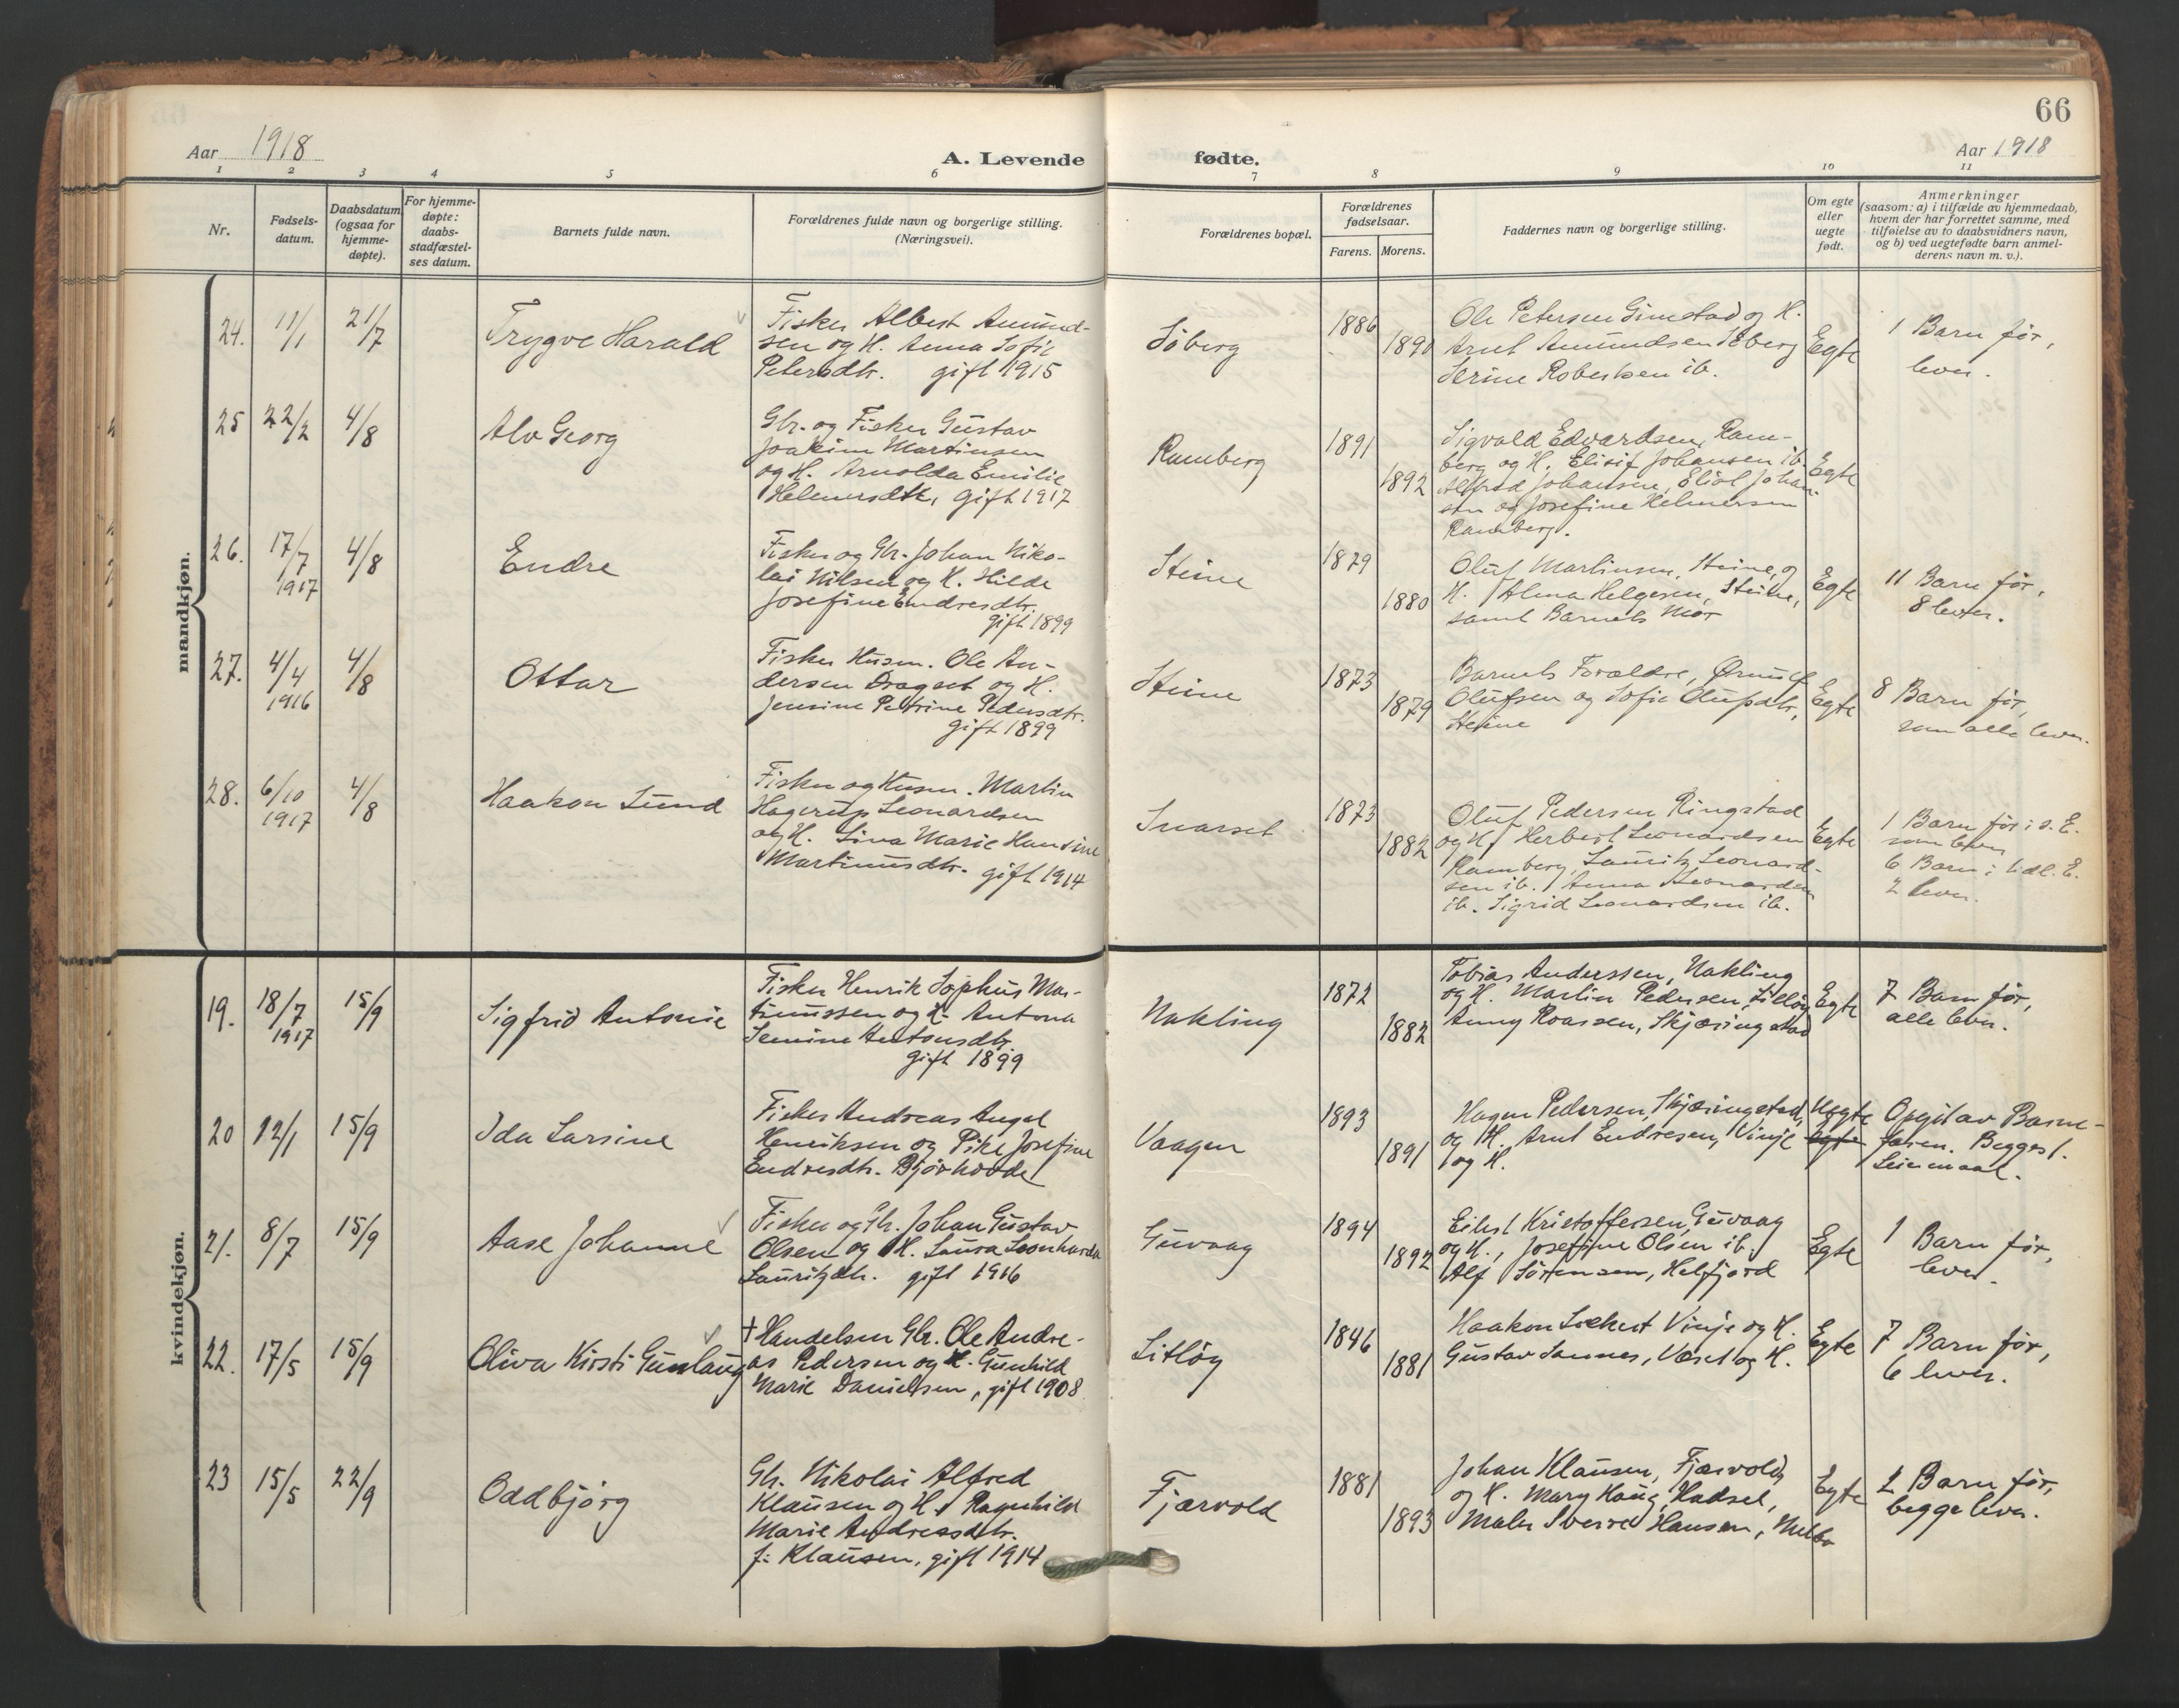 66
Aar 1918
A. Levende
fødte.
Aar 1918
1 2 3 4 5 6 7 8 9 10 11
Nr.
Fødsels-
datum.
Daabsdatum
(ogsaa for
hjemme-
døpte).
For hjemme-
døpte:
daabs-
stadfæstel-
ses datum.
Barnets fulde navn.
Forældrenes fulde navn og borgerlige stilling.
(Næringsvei).
Forældrenes bopæl.
Forældrenes
fødselsaar.
Farens. Morens.
Faddernes navn og borgerlige stilling.
Om egte
eller
uegte
født.
Anmerkninger
(saasom: a) i tilfælde av hjemmedaab,
hvem der har forrettet samme, med
tilføielse av to daabsvidners navn,
og b) ved uegtefødte barn anmel-
derens navn m. v.).
mandkjøn.
24. 11/1 21/7
Trygve Harald
Fisker Albert Amund-
sen og H. Anna Sofie
Petersdtr. gift 1915
Söberg
1886
1890
Ole Petersen Gimstad og H.
Arnt Amundsen Söberg
Serine Robertsen ib.
Egte
1 Barn før,
lever.
25 22/2 4/8
Alv Georg
Gbr. og Fisker Gustav
Joakim Martinsen
og H. Arnolda Emilie
Helmersdtr, gift 1917
Ramberg
1891
1892
Sigvald Edvardsen, Ram-
berg og H. Elisif Johansen ib.
Alfred Johansen, Eliol Johan-
sen og Josefine Helmersen
Ramberg.
Egte
26. 17/7 4/8
1917
Endre
Fisker og Gbr. Johan Niko-
lai Nilsen og H. Hilde
Josefine Endresdtr.
gift 1899
Steine
1879
1880
Oluf Martinsen, Steine, og
H. Alma Helgesen, Steine,
samt Barnets Mor
Egte
11 Barn før,
8 lever.
27. 4/4 4/8
1916
Ottar
Fisker Husm. Ole An-
dersen Dragset og H.
Jensine Petrine Pedersdtr.
gift 1899
Steine
1873
1879
Barnets Forældre, Ørnulf
Olufsen og Sofie Olufsdtr,
Steine
Egte
8 Barn før,
som alle lever.
28. 6/10 4/8
1917
Haakon Lund
Fisker og Husm. Martin
Hagerup Leonardsen
og H. Lina Marie Hansine
Martinusdtr. gift 1914
Snarset
1873
1882
Oluf Pedersen Ringstad
og H, Herbert Leonardsen
Ramberg, Lauritz Leonard-
sen ib. Anna Leonardsen
ib. Sigrid Leonardsen ib.
Egte
1 Barn før i d. E.
som lever
6 Barn i tidl. E.
2 lever.
kvindekjøn.
19. 18/7 15/9
1917
Sigfrid Antonie
Fisker Henrik Sophus Mar-
tinussen og H. Antona
Semine Antonsdtr.
gift 1899
Nakling
1872
1882
Tobias Anderssen, Nakling
og H. Martin Pedersen, Litløy
Anny Roassen, Skjæringstad
Egte
7 Barn før,
alle lever.
20 12/1 15/9
Ida Larsine
Fisker Andreas Angel
Henriksen og Pike Josefine
Endresdtr. Bjørhovde
Vaagen
1893
1891
Hagen Pedersen, Skjæringstad,
og H. Arnt Endresen, Vinje
og H.
Uegte
egte
Opgit av Barne-
faren. Begges 1.
Leiermaal.
21. 8/7 15/9
Aase Johanne
Fisker og Gbr. Johan Gustav
Olsen og H. Laura Leonharda
Lauritzdtr. gift 1916
Guvaag
1894
1892
Eilert Kristoffersen, Guvaag
og H., Josefine Olsen ib.
Alf Sörensen, Helfjord
Egte
1 Barn før,
lever.
22. 17/5 15/9
Oliva Kirsti Gunlaug
† Handelsm Gbr. Ole Andre-
as Pedersen og H. Gunhild
Marie Danielsen, gift 1908
Litløy
1846
1881
Haakon Lockert Vinje og H.
Gustav Sannes, Væset og H.
Egte
7 Barn før,
6 lever.
23 15/5 22/9
Oddbjørg
Gbr. Nikolai Alfred
Klausen og H. Ragnhild
Marie Andreasdtr.
f: Klausen, gift 1914
Fjærvold
1881
1893
Johan Klausen, Fjærvold,
og H. Mary Haug, Hadsel,
Maler Sverre Hansen, Melbo
Egte
2 Barn før,
begge lever.